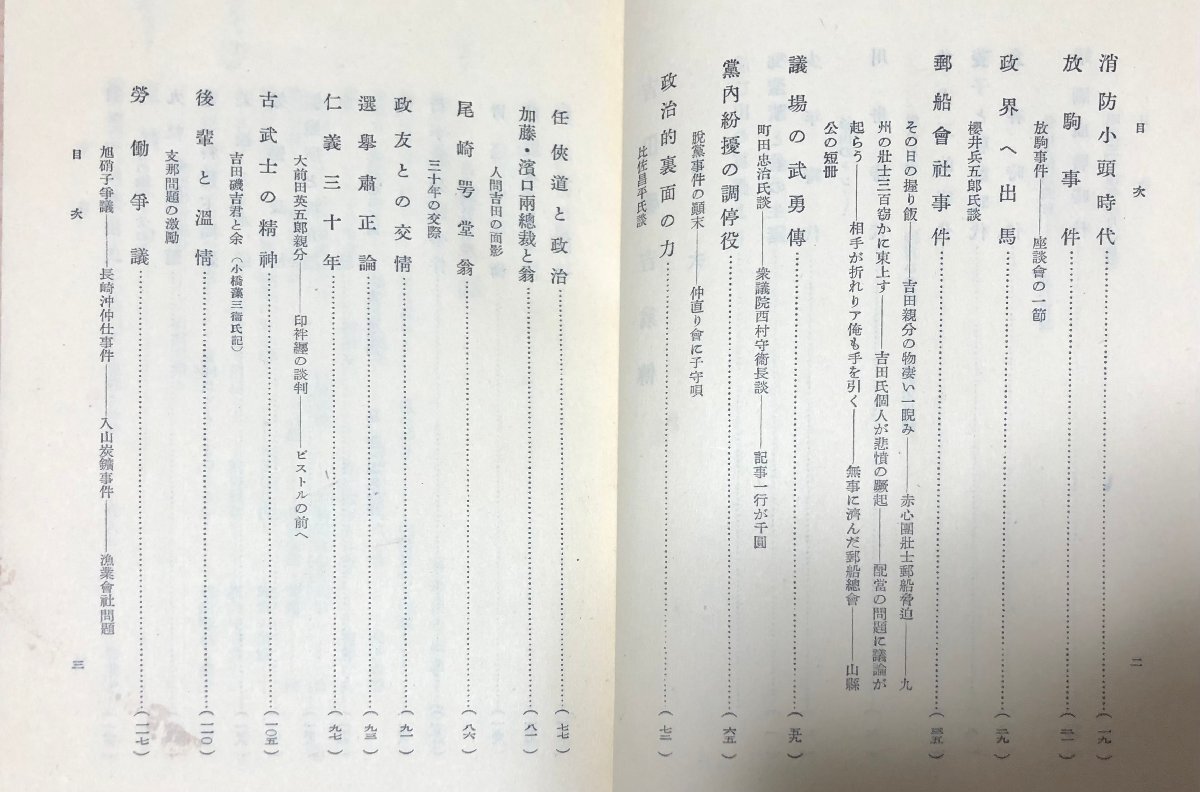 目次
消防小頭時代……(一九)
放駒事件……(二一)
放駒事件――座談會の一節
政界へ出馬……(二九)
櫻井兵五郎氏談
郵船會社事件……(三五)
その日の握り飯――吉田親分の物凄い一睨み――赤心團壯士郵船脅迫――九
州の壯士三百窃かに東上す――吉田氏個人が悲憤の蹶起――配當の問題に議論が
起らう――相手が折れりア俺も手を引く――無事に濟んだ郵船總會――山縣
公の短册
議場の武勇傳……(五九)
町田忠治氏談――衆議院西村守衞長談――記事一行が千圓
黨內紛擾の調停役……(六五)
脫黨事件の顚末――仲直り會に子守唄
政治的裏面の力……(七二)
比佐昌平氏談
二
任俠道と政治……(七七)
加藤・濱口兩總裁と翁……(八一)
人間吉田の面影
尾崎咢堂翁……(八六)
三十年の交際
政友との交情……(九一)
選擧肅正論……(九三)
仁義三十年……(九七)
大前田英五郎親分――印袢纒の談判――ピストルの前へ
古武士の精神……(一〇五)
吉田磯吉君と余(小橋藻三衞氏記)
後輩と溫情……(一一〇)
支那問題の激勵
勞働爭議……(一一七)
旭硝子爭議――長崎沖仲仕事件――入山炭鑛事件――漁業會社問題
目次
三